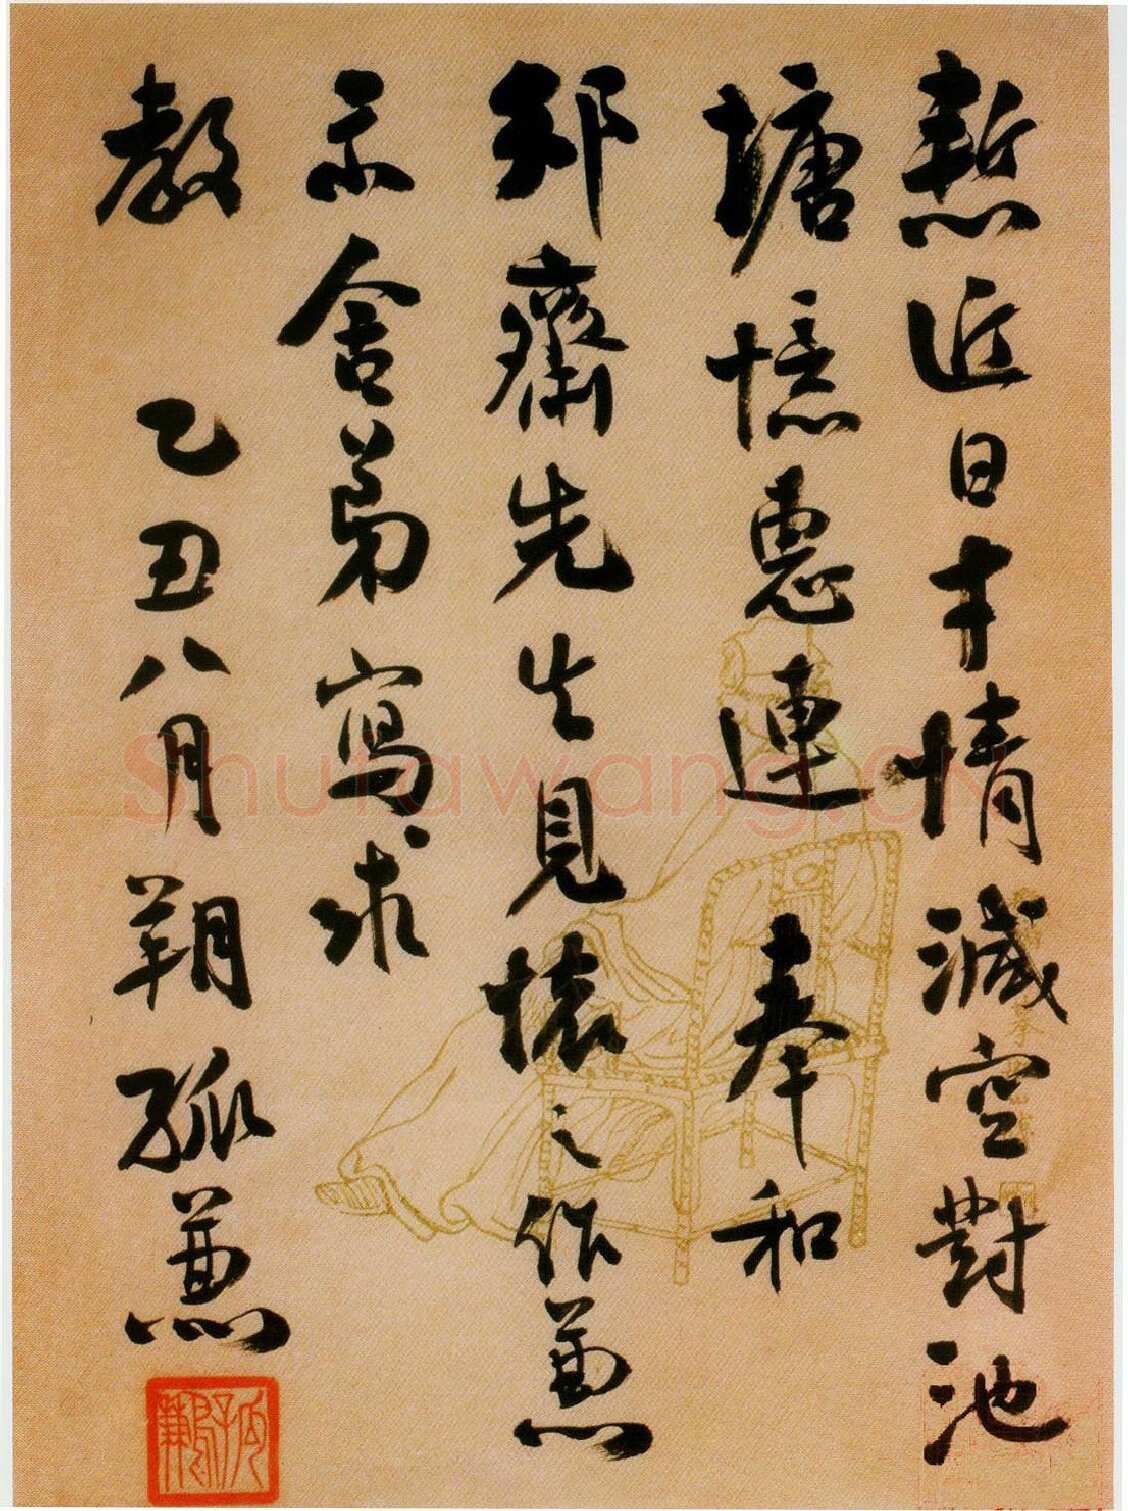 慙近日才情減空對池
塘憶惠連 奉和
邻齋先生見懷之作兼
示舍弟寫求
教 乙丑八月朔孤燕
Shufawang.CN